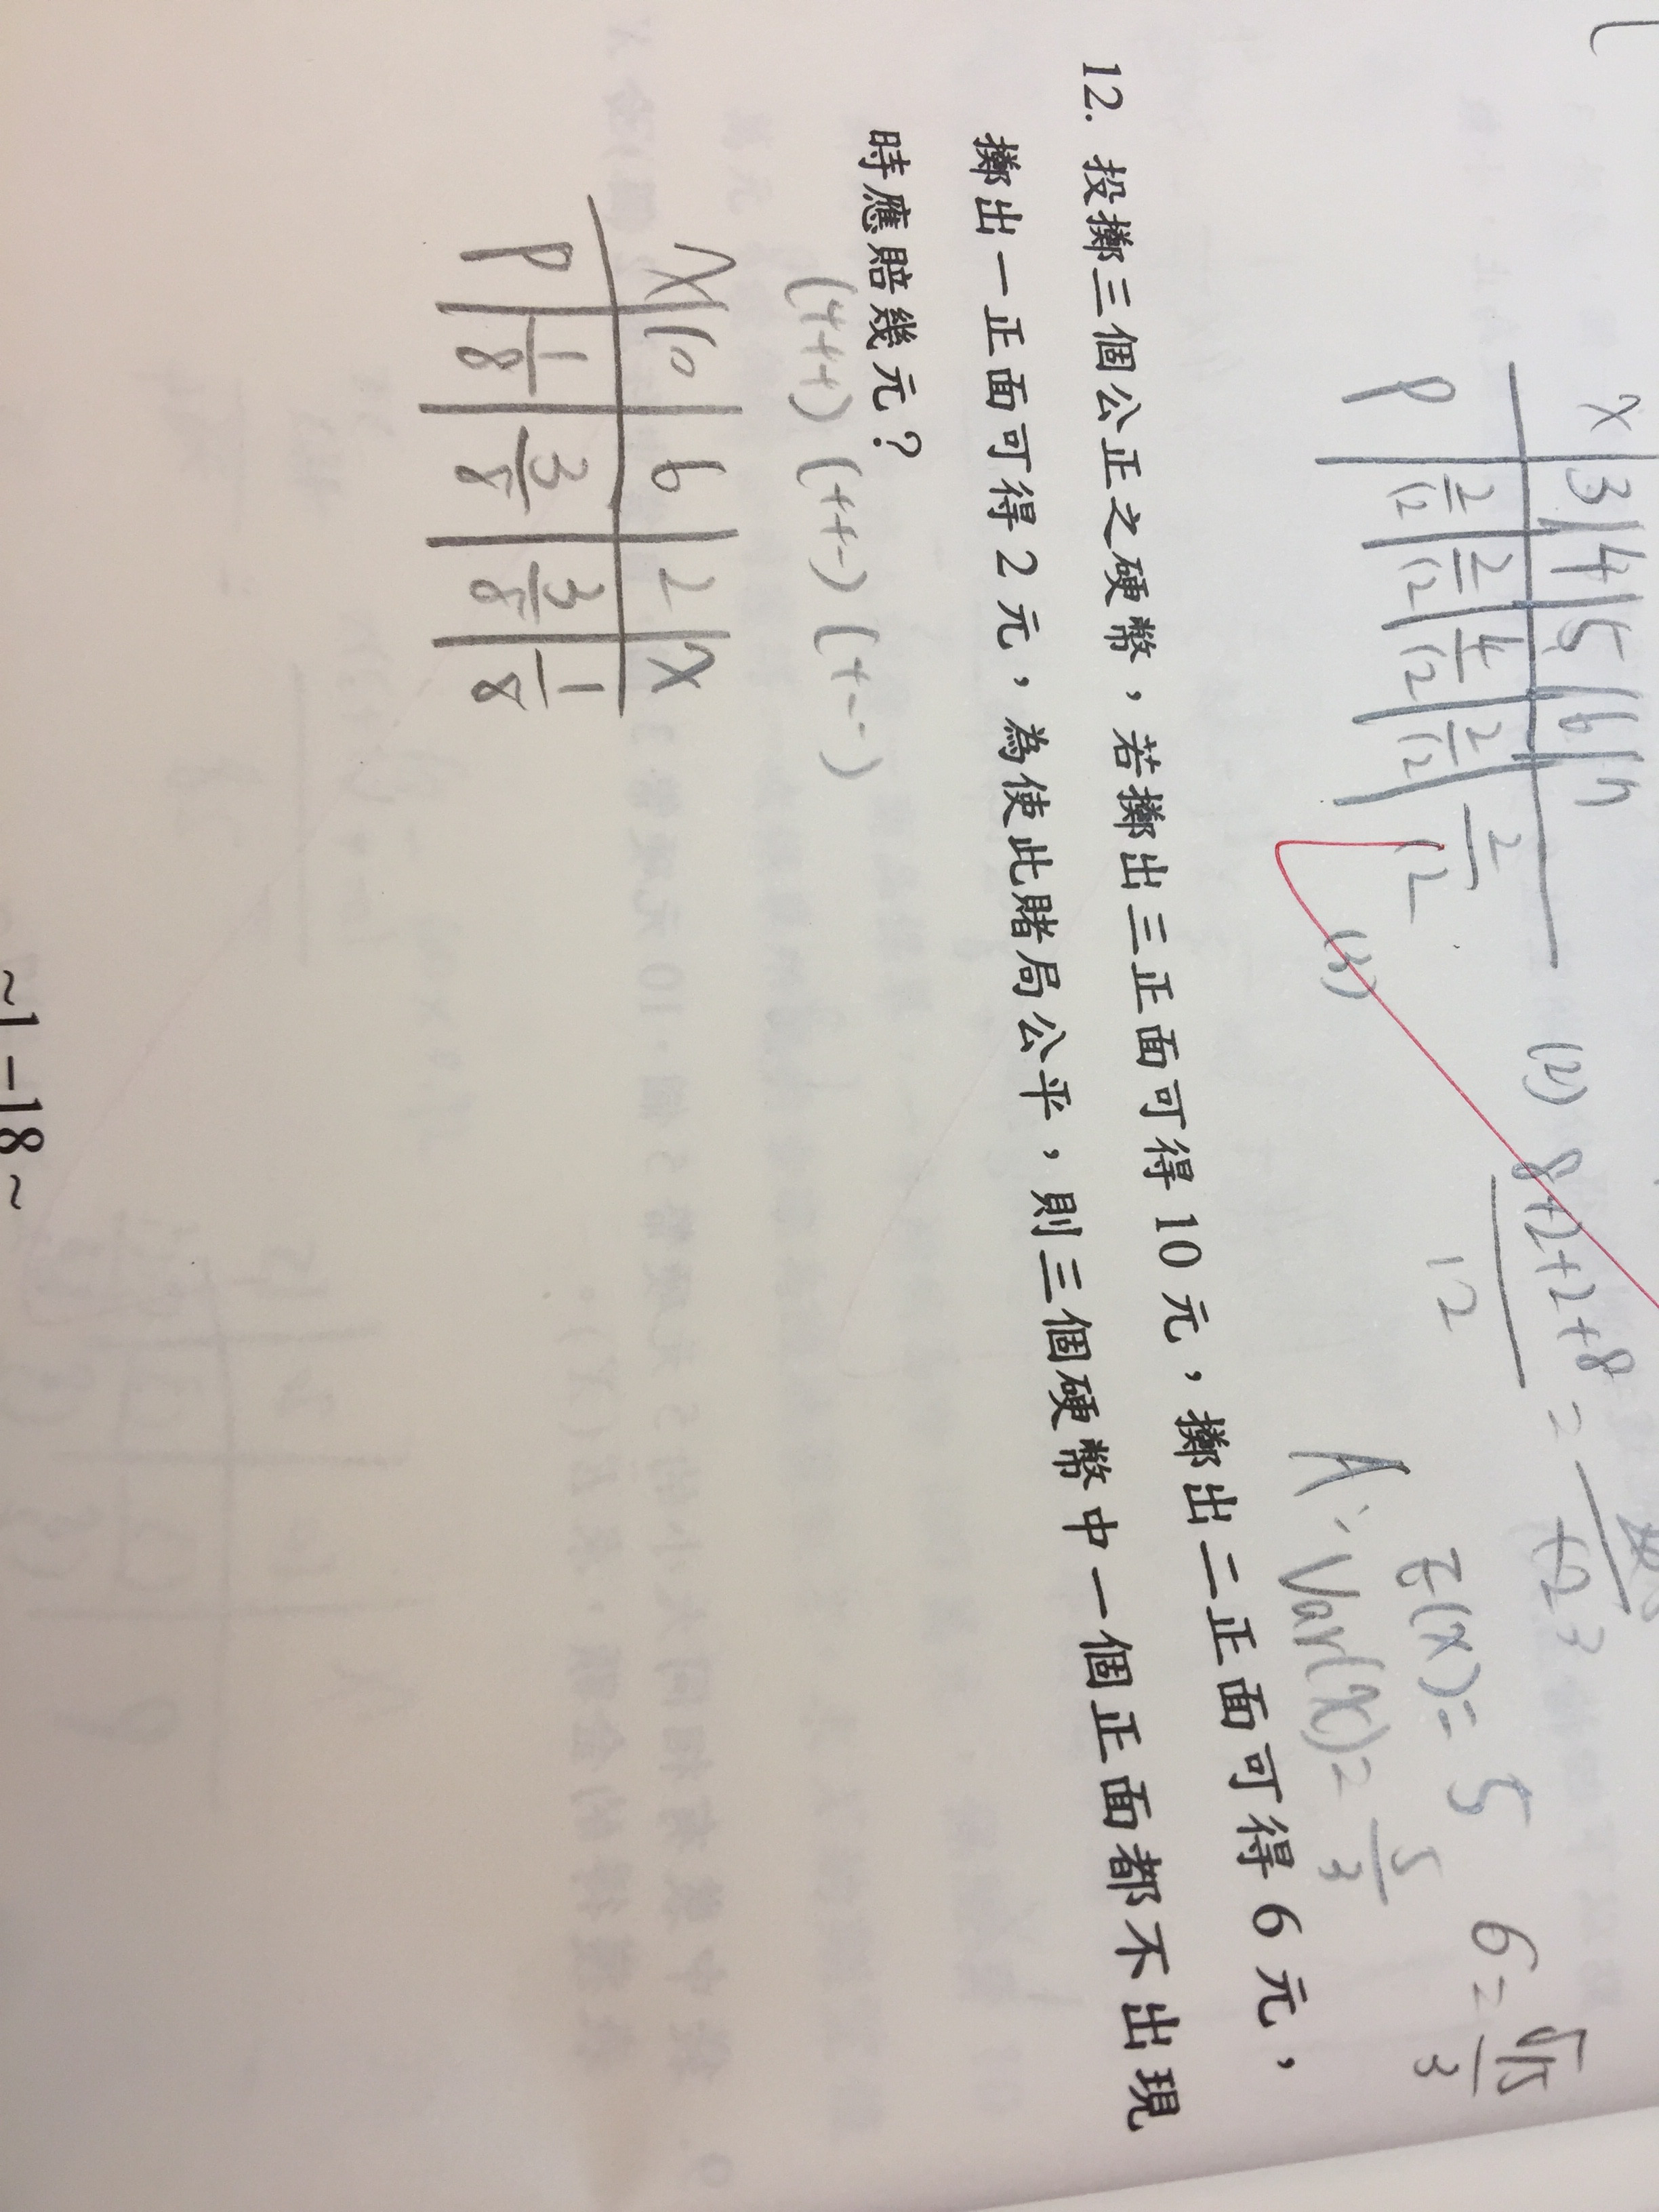 x 3 4 5 6 7
P 2/12 2/12 4/12 2/12 2/12
(2) 8+2+2+8 / 12 =
(3)
E(x)= 5
A: Var(x)= 5/3
6 = √15/3
12. 投擲三個公正之硬幣，若擲出三正面可得10元，擲出二正面可得6元，
擲出一正面可得2元，為使此賭局公平，則三個硬幣中一個正面都不出現
時應賠幾元？
(+++) (++-) (+--)
X 10 6 2 x
P 1/8 3/8 3/8 1/8
~1-18~